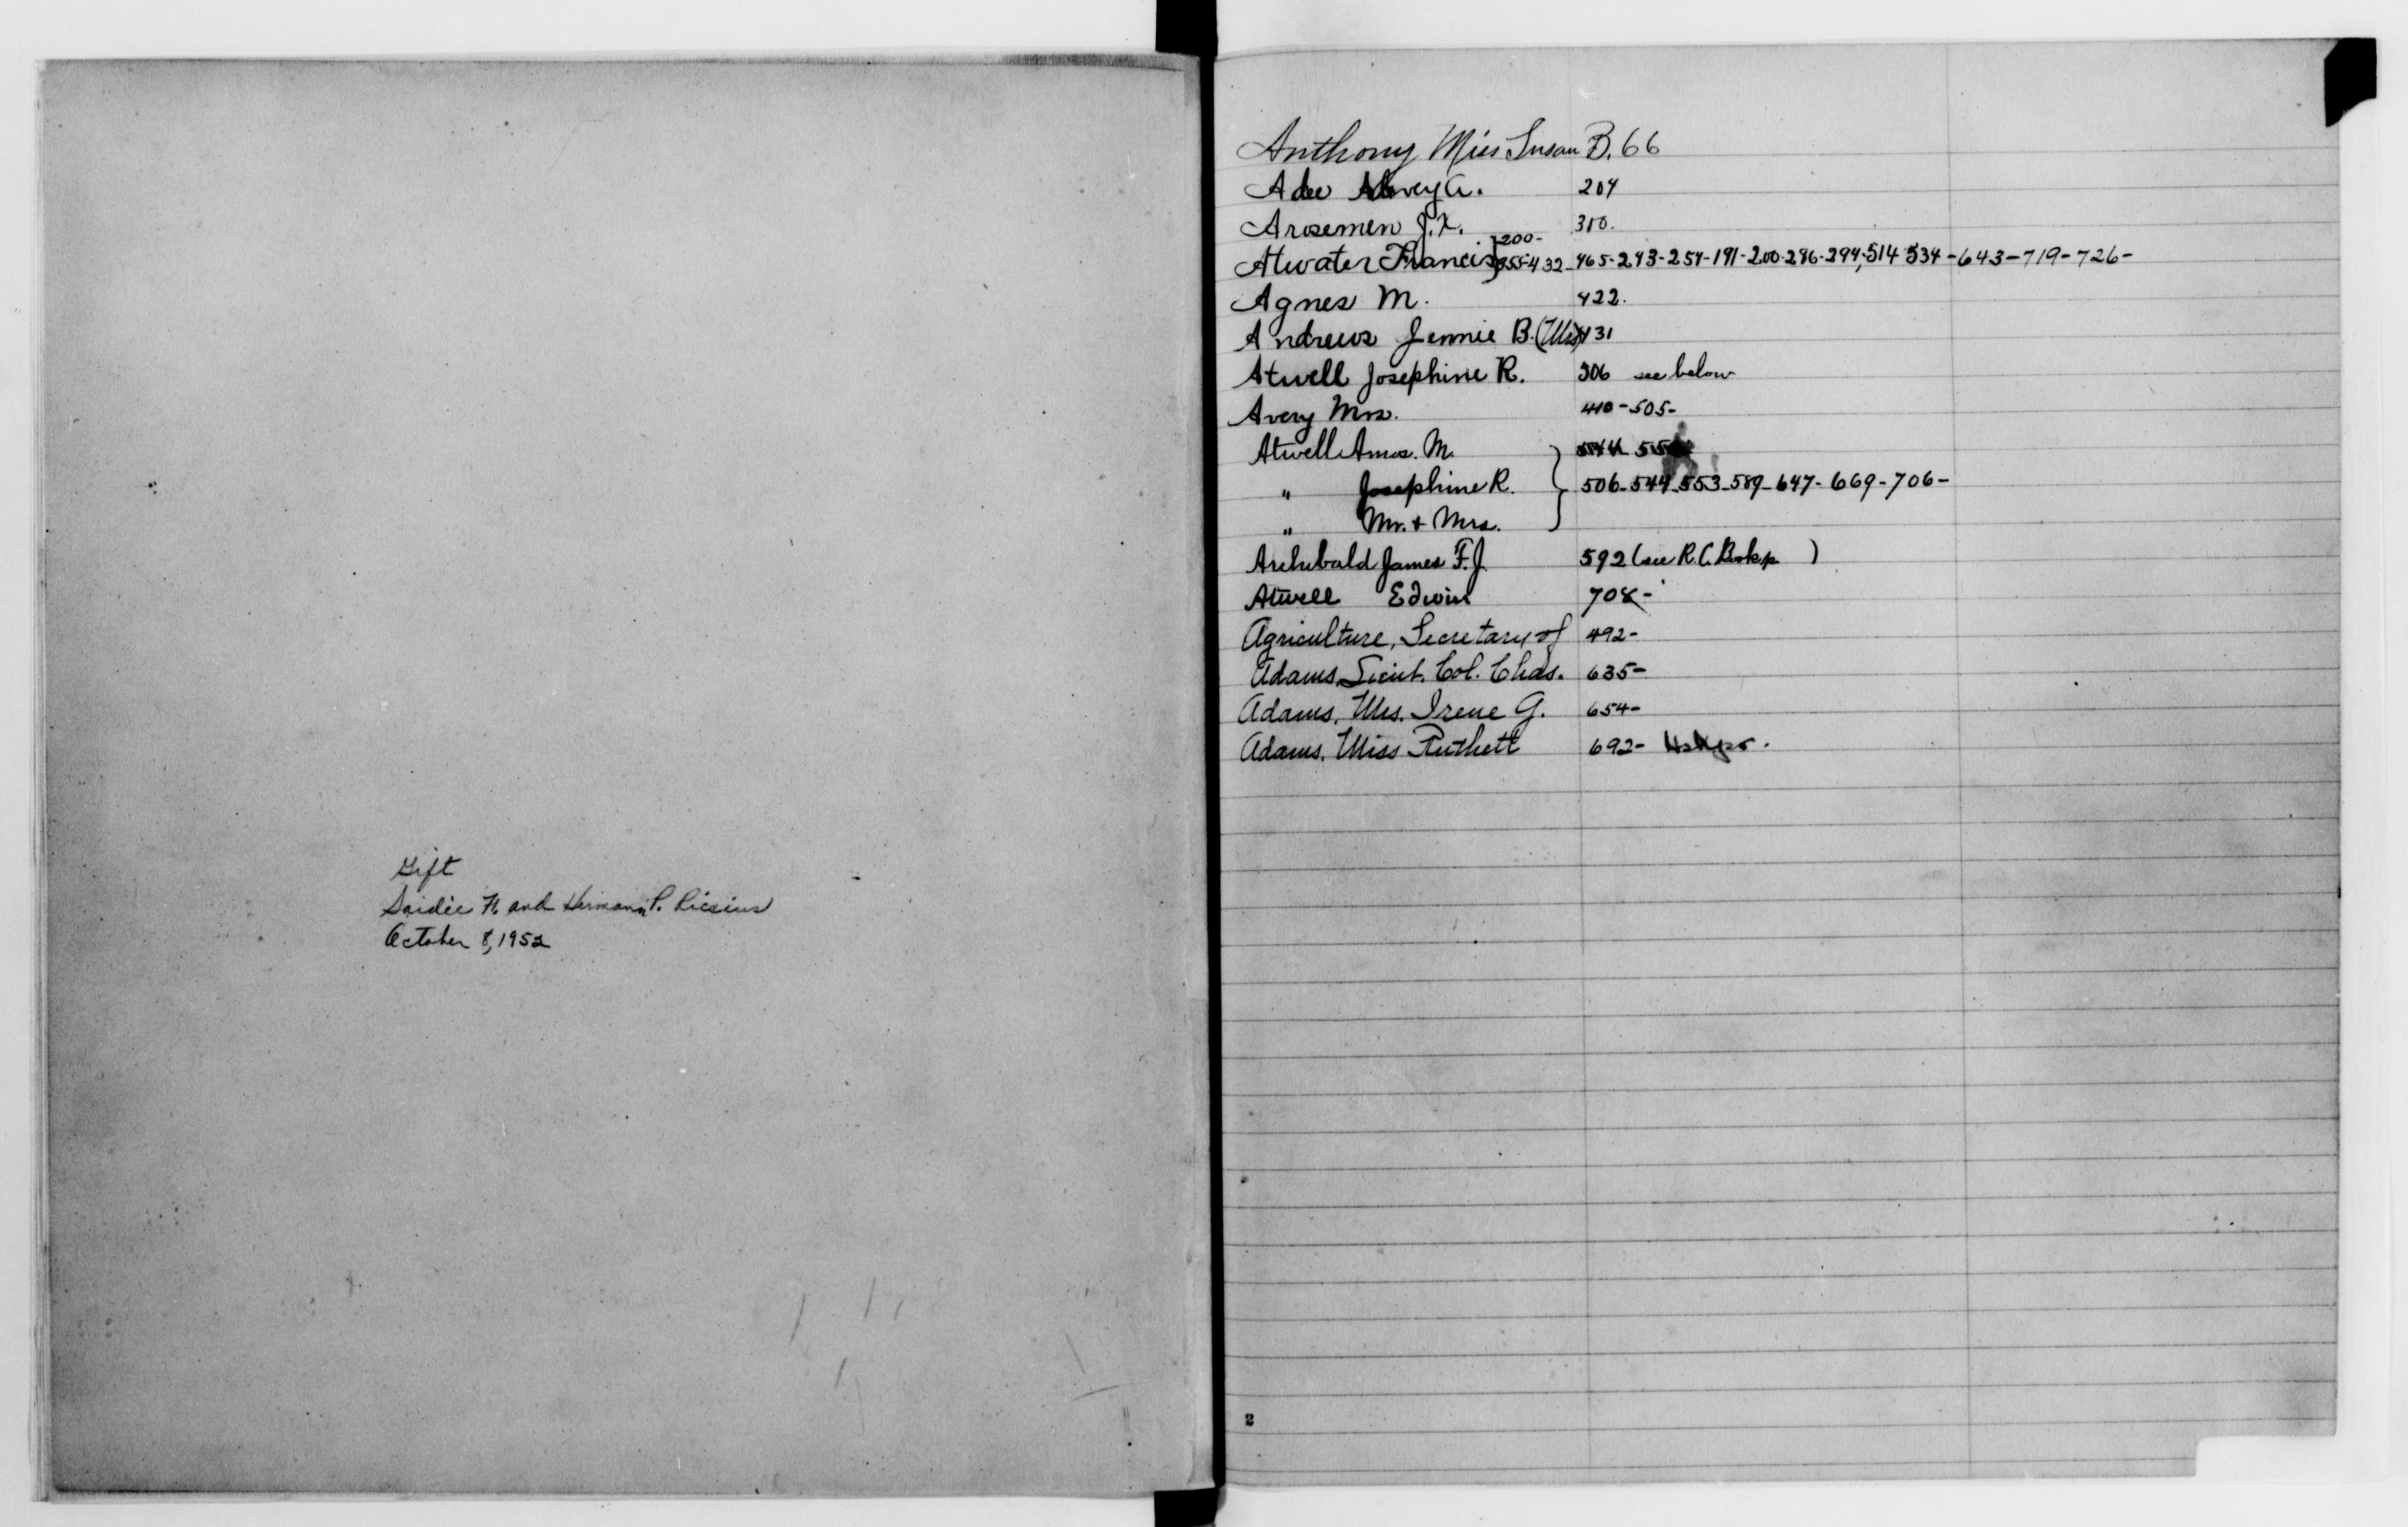 Gift
Saidie F. and Hermann P. Riccius
October 8, 1952
Anthony Miss Susan B. 66
Adee Alvey A. 204
Arosemen J. X. 310.
200-
Atwater Francis 432-465-243-254-191-200-286-294, 514 534-643-719-726-
Agnes M. 422.
Andrews Jennie B. (Mrs) 131
Atwell Josephine R. 506 see below
Avery Mrs. 410-505-
Atwell Amos. M.
" Josephine R. 506-544-553-589-647-669-706-
" Mr. & Mrs.
Archibald James F. J. 592 (see R. C. Book p. )
Atwell Edwin 708-
Agriculture, Secretary of 492-
Adams, Lieut. Col. Chas. 635-
Adams, Mrs. Irene G. 654-
Adams, Miss Ruthett 692-
2